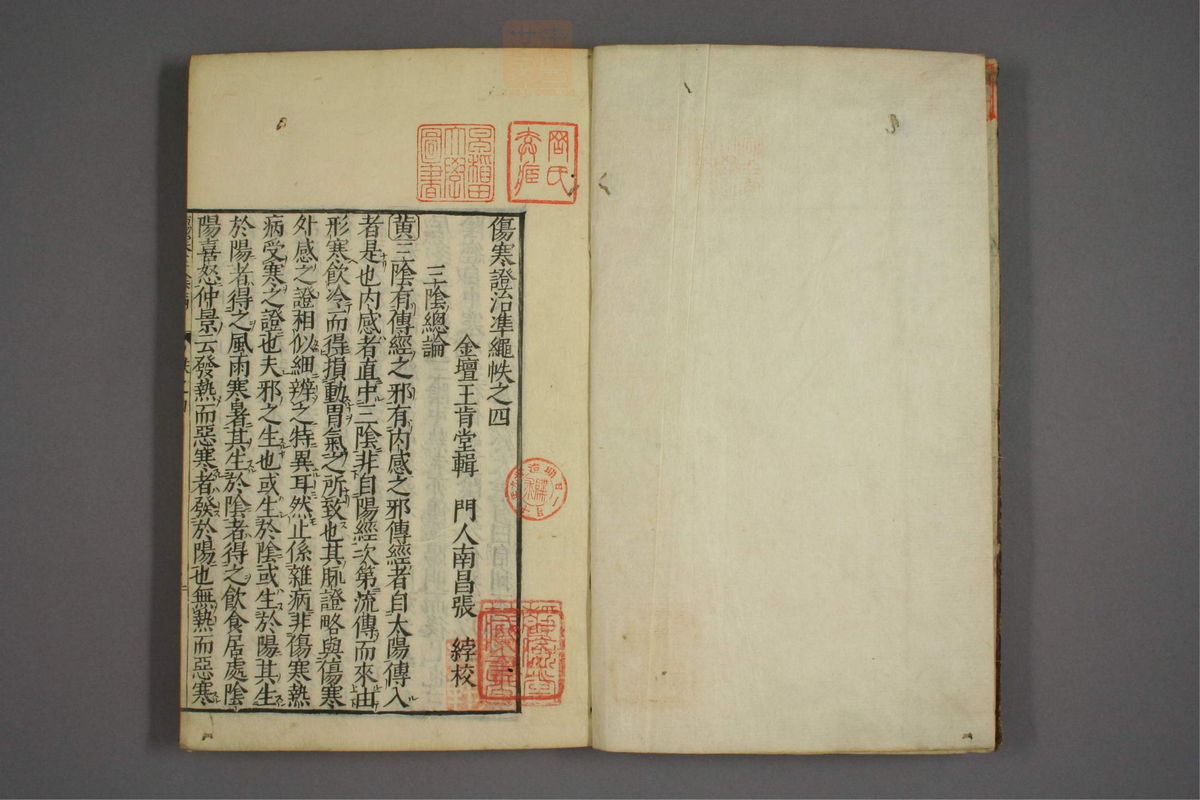 傷寒證治準繩帙之四
金壇王肯堂輯 門人南昌張 綍校
三陰總論
黄三陰有傳經之邪有内感之邪傳經者自太陽傳入
者是也内感者直中三陰非自陽經次第流傳而來由
形寒飲冷而得損動胃氣之所致也其脉證略與傷寒
外感之證相似細辨之特異耳然止係雜病非傷寒熱
病受寒之證也夫邪之生也或生於陰或生於陽其生
於陽者得之風雨寒暑其生於陰者得之飲食居處陰
陽喜怒仲景云發熱而惡寒者發於陽也無熱而惡寒